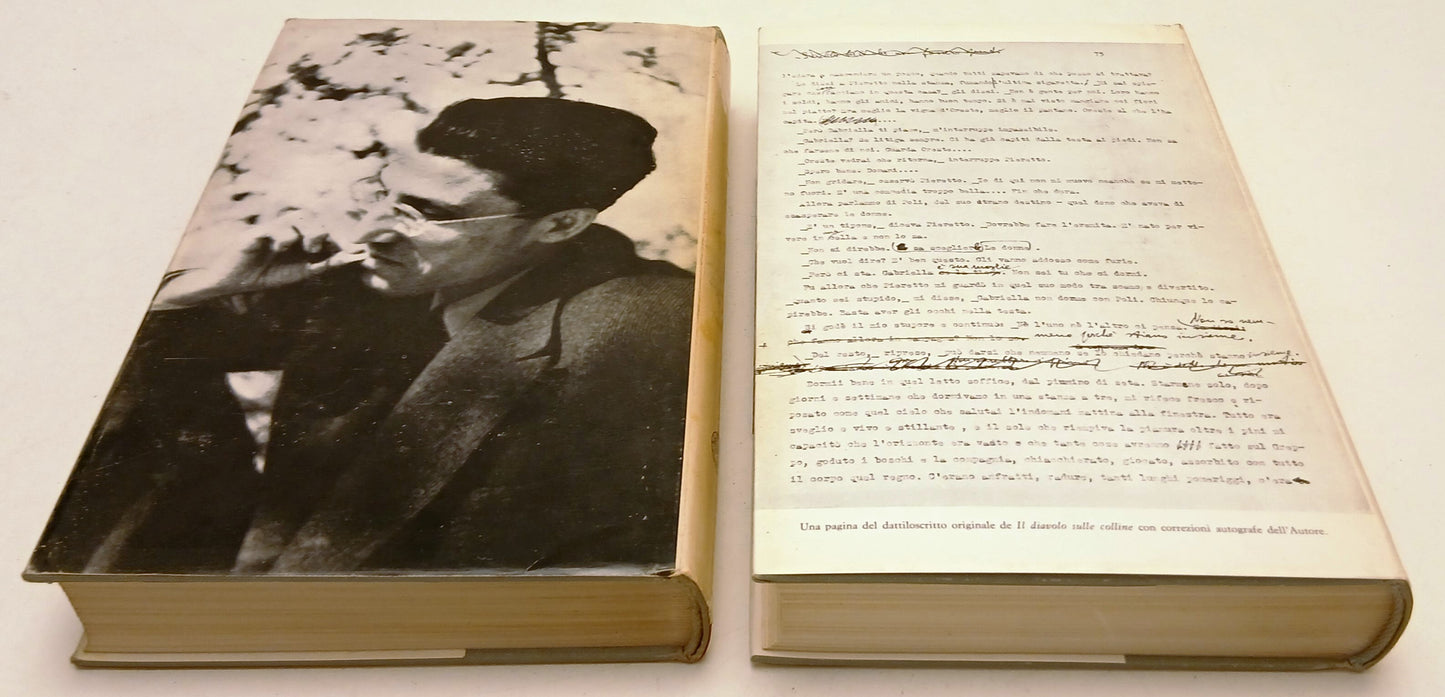 75
l'aieva p nascondere un posto, quando tutti sapevano di che posto si trattava?
_Lo dissi a Pieretto nella stanza, fumando l'ultima sigaretta. _Mi vuoi spie-
gare che facciamo in questa casa?_ gli dissi. _Non è gente per noi. Loro hanno
i soldi, hanno gli amici, hanno buon tempo. Si è mai visto mangiare coi fiori
nel piatto? Era meglio la vigna d'Oreste, meglio il pantano. Oreste sì che l'ha
capita. ....
_Però Gabriella ti piace,_ m'interruppe impassibile.
_Gabriella? Se litiga sempre. Ci ha già capiti dalla testa ai piedi. Non sa
che farsene di noi. Guarda Oreste....
_Oreste vedrai che ritorna,_ interruppe Pieretto.
_Spero bene. Domani....
_Non gridare,_ osservò Pieretto. _Io di qui non mi muovo neanche se mi metto-
no fuori. E' una commedia troppo bella.... Fin che dura.
Allora parlammo di Poli, del suo strano destino - quel dono che aveva di
esasperare le donne.
_E' un tipone,_ diceva Pieretto. _Dovrebbe fare l'eremita. E' nato per vi-
vere in cella e non lo sa.
_Non si direbbe. sa scegliere le donne.
_Che vuol dire? E' ben questo. Gli vanno addosso come furie.
_Però ci sta. Gabriella è sua moglie. Non sei tu che ci dormi.
Fu allora che Pieretto mi guardò in quel suo modo tra scemo e divertito.
_quanto sei stupido,_ mi disse, _Gabriella non dorme con Poli. Chiunque lo ca-
pirebbe. Basta aver gli occhi nella testa.
Si godé il mio stupore e continuò: _Né l'uno né l'altro ci pensa. Non sa nem-
meno perché stiano insieme.
_Del resto,_ riprese, _può darsi che nemmeno se lo chiedano perchè stanno insieme.
Dormii bene in quel letto soffice, dal piumino di seta. Starmene solo, dopo
giorni e settimane che dormivamo in una stanza a tre, mi rifece fresco e ri-
posato come quel cielo che salutai l'indomani mattina alla finestra. Tutto era
sveglio e vivo e stillante , e il sole che riempiva la pianura oltre i pini mi
capacitò che l'orizzonte era vasto e che tante cose avremmo fatto sul Grep-
po, goduto i boschi e la compagnia, chiacchierato, giocato, assorbito con tutto
il corpo quel regno. C'erano anfratti, radure, tanti lunghi pomeriggi, c'era
Una pagina del dattiloscritto originale de Il diavolo sulle colline con correzioni autografe dell'Autore.